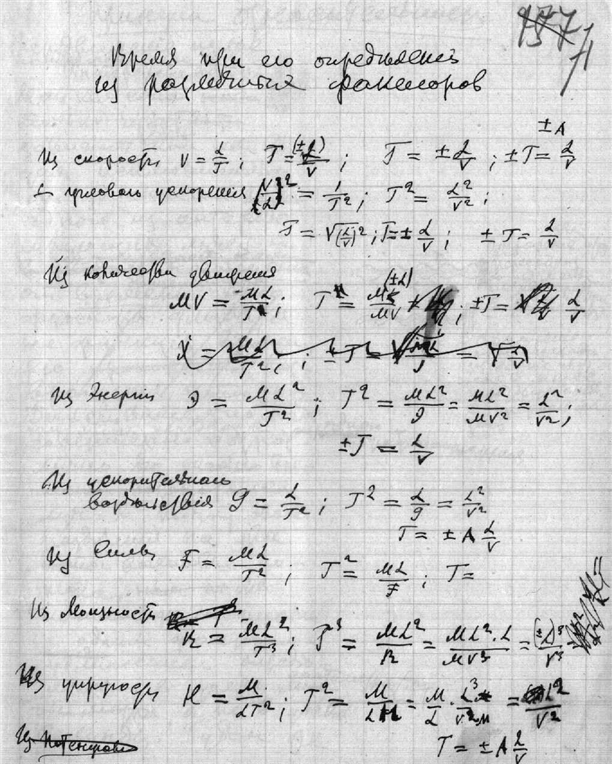 157
71
Время при его определениях
из различных факторов
±A
Из скорости V = L/T ; T = (±L)/V ; T = ± L/V ; ±T = L/V
углового ускорения V²/L² = 1/T² ; T² = L²/V² ;
T = √(L/V)² ; T = ± L/V ; ± T = L/V
Из количества движения
MV = ML/T ; T = M(±L)/MV ; ±T = L/V
Из Энергии Э = ML²/T² ; T² = ML²/Э = ML²/MV² = L²/V² ;
±T = L/V
Из ускорительного
воздействия g = L/T² ; T² = L/g = L²/V²
T = ± A L/V
Из Силы F = ML/T² ; T² = ML/F ; T =
Из Мощности
R = ML²/T³ ; T³ = ML²/R = ML²·L/MV³ = (±L)³/V³
Из упругости H = M/LT² ; T² = M/LH = M/L · L³/V²M = L²/V²
T = ± A L/V